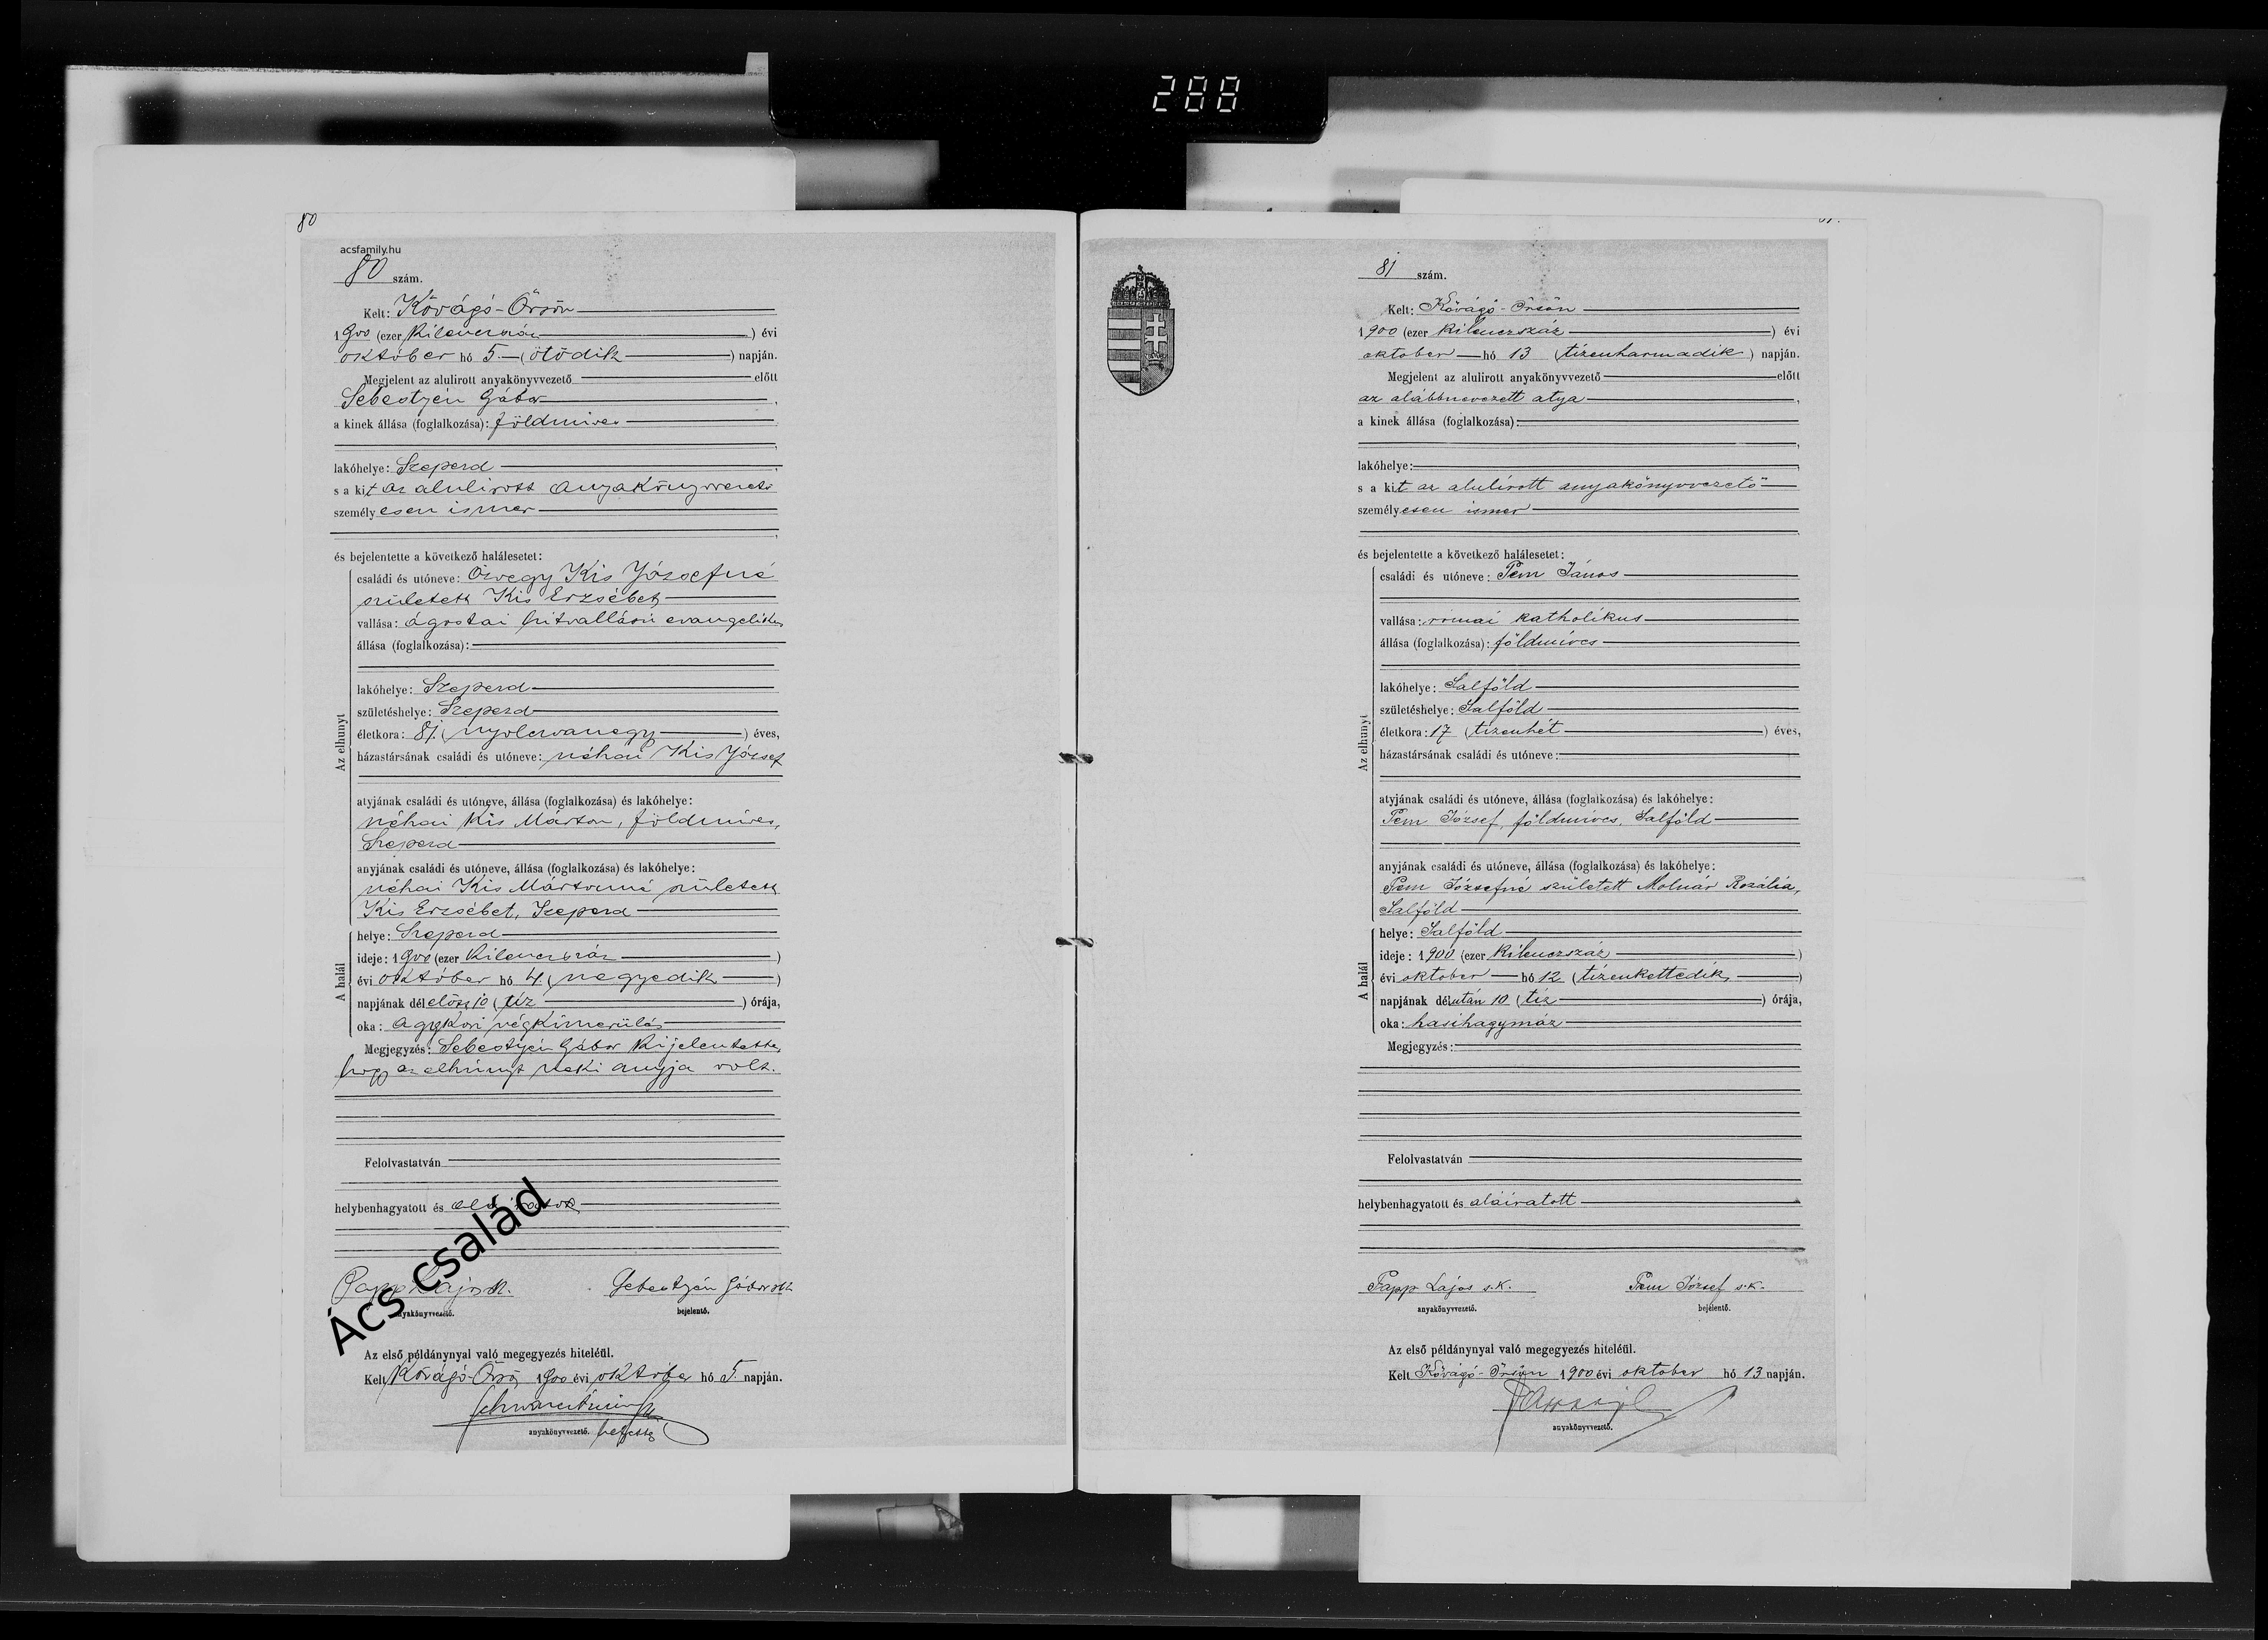 288
80
acsfamily.hu
80 szám.
Kelt: Kővágó-Örsön
1900 (ezer kilenczszáz ) évi
október hó 5. (ötödik ) napján.
Megjelent az alulirott anyakönyvvezető előtt
Sebestyén Gábor ,
a kinek állása (foglalkozása): földmíves
lakóhelye: Szepezd ,
s a kit az alulirott anyakönyvvezető
személyesen ismer
és bejelentette a következő halálesetet:
Az elhunyt
családi és utóneve: Özvegy Kis Józsefné
született Kis Erzsébet
vallása: ágostai hitvallású evangelikus
állása (foglalkozása):
lakóhelye: Szepezd
születéshelye: Szepezd
életkora: 81. (nyolcvanegy ) éves,
házastársának családi és utóneve: néhai Kis József
atyjának családi és utóneve, állása (foglalkozása) és lakóhelye:
néhai Kis Márton, földmíves,
Szepezd
anyjának családi és utóneve, állása (foglalkozása) és lakóhelye:
néhai Kis Mártonné született
Kis Erzsébet, Szepezd
A halál
helye: Szepezd
ideje: 1900 (ezer kilenczszáz )
évi október hó 4. (negyedik )
napjának délelőtt 10 (tíz ) órája,
oka: aggkori végkimerülés
Megjegyzés: Sebestyén Gábor kijelentette,
hogy az elhúnyt neki anyja volt.
Felolvastatván
helybenhagyatott és aláíratott
Papp Lajos s.k.
anyakönyvvezető.
Sebestyén Gábor s.k.
bejelentő.
Az első példánynyal való megegyezés hiteléül.
Kelt Kővágó-Örsön 1900 évi október hó 5. napján.
anyakönyvvezető. helyettes
Ács család
81 szám.
Kelt: Kővágó-Örsön
1900 (ezer kilenczszáz ) évi
oktober hó 13 (tizenharmadik ) napján.
Megjelent az alulirott anyakönyvvezető előtt
az alábbnevezett atya ,
a kinek állása (foglalkozása):
lakóhelye:
s a kit az alulírott anyakönyvvezető
személyesen ismer
és bejelentette a következő halálesetet:
Az elhunyt
családi és utóneve: Pem János
vallása: római katholikus
állása (foglalkozása): földmíves
lakóhelye: Salföld
születéshelye: Salföld
életkora: 17 (tizenhét ) éves,
házastársának családi és utóneve:
atyjának családi és utóneve, állása (foglalkozása) és lakóhelye:
Pem József, földmíves, Salföld
anyjának családi és utóneve, állása (foglalkozása) és lakóhelye:
Pem Józsefné született Molnár Rozália,
Salföld
A halál
helye: Salföld
ideje: 1900 (ezer kilenczszáz )
évi oktober hó 12 (tizenkettedik )
napjának délután 10 (tíz ) órája,
oka: hasihagymáz
Megjegyzés:
Felolvastatván
helybenhagyatott és aláíratott
Papp Lajos s.k.
anyakönyvvezető.
Pem József s.k.
bejelentő.
Az első példánynyal való megegyezés hiteléül.
Kelt Kővágó-Örsön 1900 évi oktober hó 13 napján.
anyakönyvvezető.